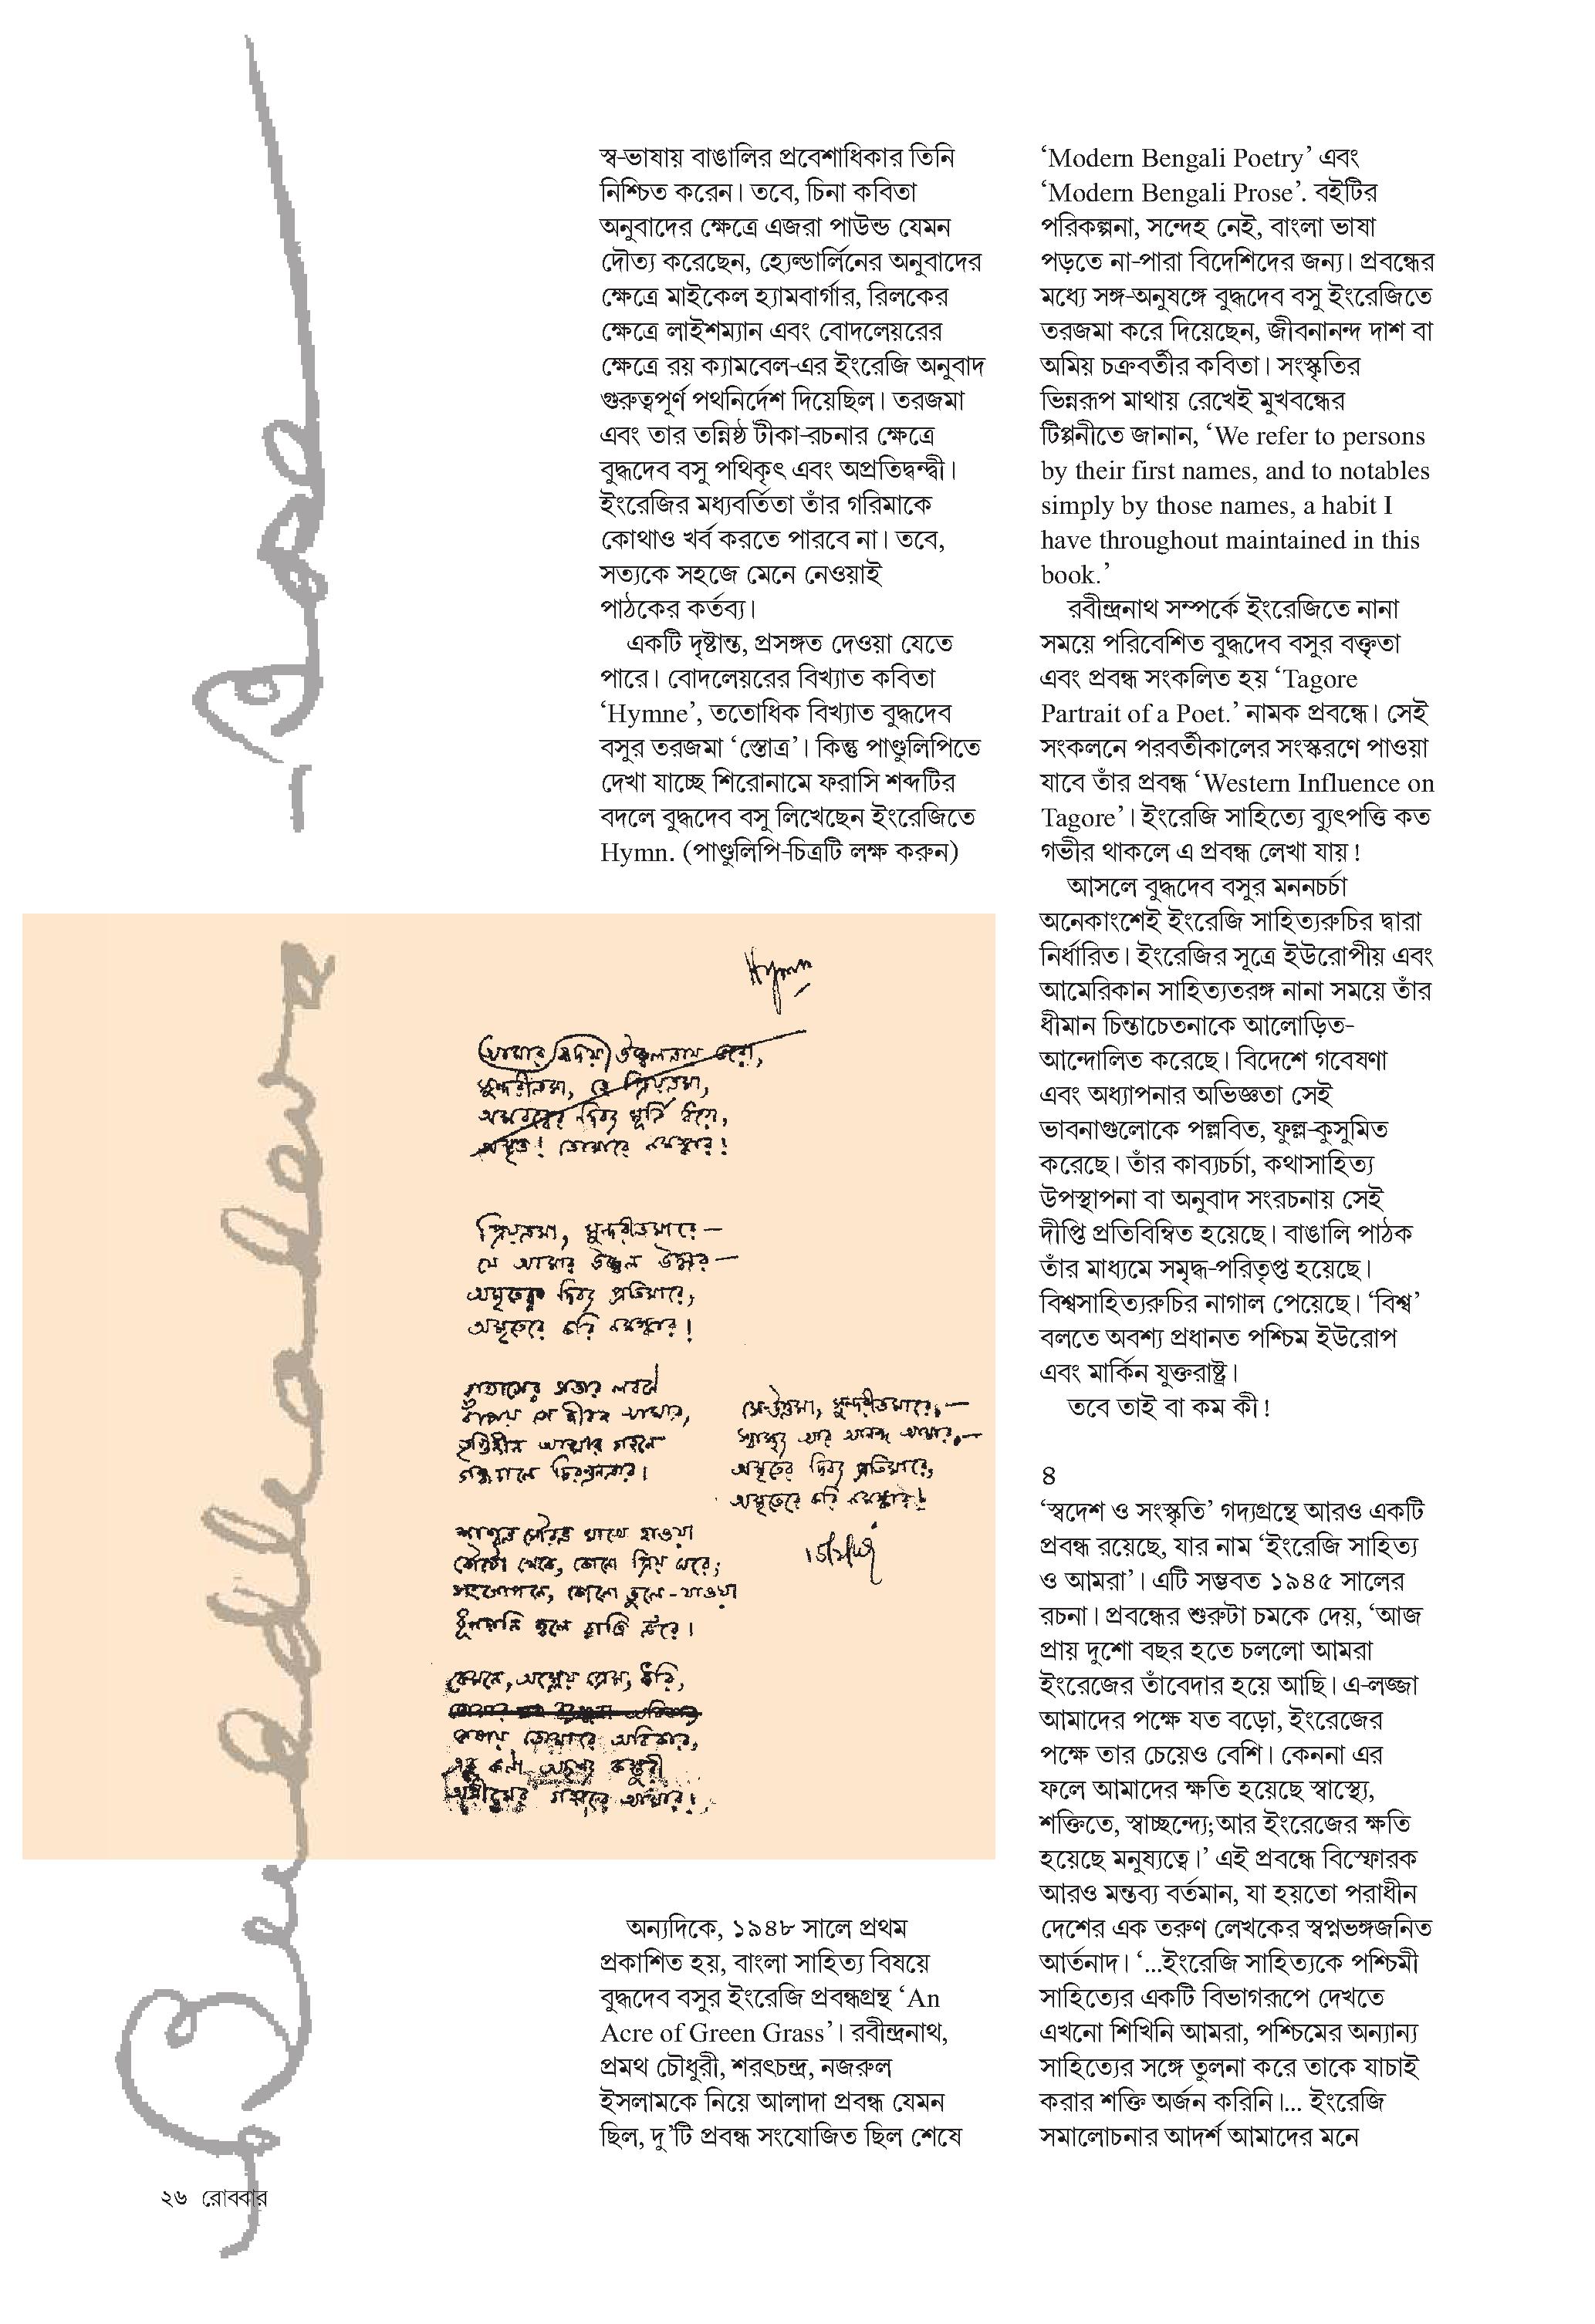 স্ব-ভাষায় বাঙালির প্রবেশাধিকার তিনি
নিশ্চিত করেন। তবে, চিনা কবিতা
অনুবাদের ক্ষেত্রে এজরা পাউন্ড যেমন
দৌত্য করেছেন, হ্যেল্ডার্লিনের অনুবাদের
ক্ষেত্রে মাইকেল হ্যামবার্গার, রিলকের
ক্ষেত্রে লাইশম্যান এবং বোদলেয়রের
ক্ষেত্রে রয় ক্যামবেল-এর ইংরেজি অনুবাদ
গুরুত্বপূর্ণ পথনির্দেশ দিয়েছিল। তরজমা
এবং তার তন্নিষ্ঠ টীকা-রচনার ক্ষেত্রে
বুদ্ধদেব বসু পথিকৃৎ এবং অপ্রতিদ্বন্দ্বী।
ইংরেজির মধ্যবর্তিতা তাঁর গরিমাকে
কোথাও খর্ব করতে পারবে না। তবে,
সত্যকে সহজে মেনে নেওয়াই
পাঠকের কর্তব্য।
একটি দৃষ্টান্ত, প্রসঙ্গত দেওয়া যেতে
পারে। বোদলেয়রের বিখ্যাত কবিতা
‘Hymne’, ততোধিক বিখ্যাত বুদ্ধদেব
বসুর তরজমা ‘স্তোত্র’। কিন্তু পাণ্ডুলিপিতে
দেখা যাচ্ছে শিরোনামে ফরাসি শব্দটির
বদলে বুদ্ধদেব বসু লিখেছেন ইংরেজিতে
Hymn. (পাণ্ডুলিপি-চিত্রটি লক্ষ করুন)
Hymn
সুন্দরীতমা, হে প্রিয়তমা,
অমৃত! তোমারে নমস্কার!
প্রিয়তমা, সুন্দরীতমারে—
যে আমার উজ্জ্বল উদ্ধার—
অমৃতের দিব্য প্রতিমারে,
অমৃতেরে করি নমস্কার!
বাতাসের সত্তার লবণে
বাঁচায় সে জীবন আমার,
তৃপ্তিহীন আত্মার গহনে
গন্ধ ঢালে চিরন্তনতার।
সুন্দরীতমারে,—
স্বাস্থ্য আর আনন্দ আমার,—
অমৃতের দিব্য প্রতিমারে,
অমৃতেরে করি নমস্কার!
শাশ্বত সৌরভ মাখে হাওয়া
কৌটো থেকে, কোনো প্রিয় ঘরে;
সংগোপনে, কোনো ভুলে-যাওয়া
ধূপদানি জ্বলে রাত্রি ভ'রে।
কেমনে, অম্লেয় প্রেম, ধরি,
ভাষায় তোমারে অবিকার,
এক কণা অদৃশ্য কস্তুরী
অসীমের গহ্বরে আমার!
অন্যদিকে, ১৯৪৮ সালে প্রথম
প্রকাশিত হয়, বাংলা সাহিত্য বিষয়ে
বুদ্ধদেব বসুর ইংরেজি প্রবন্ধগ্রন্থ ‘An
Acre of Green Grass’। রবীন্দ্রনাথ,
প্রমথ চৌধুরী, শরৎচন্দ্র, নজরুল
ইসলামকে নিয়ে আলাদা প্রবন্ধ যেমন
ছিল, দু’টি প্রবন্ধ সংযোজিত ছিল শেষে
‘Modern Bengali Poetry’ এবং
‘Modern Bengali Prose’. বইটির
পরিকল্পনা, সন্দেহ নেই, বাংলা ভাষা
পড়তে না-পারা বিদেশিদের জন্য। প্রবন্ধের
মধ্যে সঙ্গ-অনুষঙ্গে বুদ্ধদেব বসু ইংরেজিতে
তরজমা করে দিয়েছেন, জীবনানন্দ দাশ বা
অমিয় চক্রবর্তীর কবিতা। সংস্কৃতির
ভিন্নরূপ মাথায় রেখেই মুখবন্ধের
টিপ্পনীতে জানান, ‘We refer to persons
by their first names, and to notables
simply by those names, a habit I
have throughout maintained in this
book.’
রবীন্দ্রনাথ সম্পর্কে ইংরেজিতে নানা
সময়ে পরিবেশিত বুদ্ধদেব বসুর বক্তৃতা
এবং প্রবন্ধ সংকলিত হয় ‘Tagore
Partrait of a Poet.’ নামক প্রবন্ধে। সেই
সংকলনে পরবর্তীকালের সংস্করণে পাওয়া
যাবে তাঁর প্রবন্ধ ‘Western Influence on
Tagore’। ইংরেজি সাহিত্যে ব্যুৎপত্তি কত
গভীর থাকলে এ প্রবন্ধ লেখা যায়!
আসলে বুদ্ধদেব বসুর মননচর্চা
অনেকাংশেই ইংরেজি সাহিত্যরুচির দ্বারা
নির্ধারিত। ইংরেজির সূত্রে ইউরোপীয় এবং
আমেরিকান সাহিত্যতরঙ্গ নানা সময়ে তাঁর
ধীমান চিন্তাচেতনাকে আলোড়িত-
আন্দোলিত করেছে। বিদেশে গবেষণা
এবং অধ্যাপনার অভিজ্ঞতা সেই
ভাবনাগুলোকে পল্লবিত, ফুল্ল-কুসুমিত
করেছে। তাঁর কাব্যচর্চা, কথাসাহিত্য
উপস্থাপনা বা অনুবাদ সংরচনায় সেই
দীপ্তি প্রতিবিম্বিত হয়েছে। বাঙালি পাঠক
তাঁর মাধ্যমে সমৃদ্ধ-পরিতৃপ্ত হয়েছে।
বিশ্বসাহিত্যরুচির নাগাল পেয়েছে। ‘বিশ্ব’
বলতে অবশ্য প্রধানত পশ্চিম ইউরোপ
এবং মার্কিন যুক্তরাষ্ট্র।
তবে তাই বা কম কী!
৪
‘স্বদেশ ও সংস্কৃতি’ গদ্যগ্রন্থে আরও একটি
প্রবন্ধ রয়েছে, যার নাম ‘ইংরেজি সাহিত্য
ও আমরা’। এটি সম্ভবত ১৯৪৫ সালের
রচনা। প্রবন্ধের শুরুটা চমকে দেয়, ‘আজ
প্রায় দুশো বছর হতে চললো আমরা
ইংরেজের তাঁবেদার হয়ে আছি। এ-লজ্জা
আমাদের পক্ষে যত বড়ো, ইংরেজের
পক্ষে তার চেয়েও বেশি। কেননা এর
ফলে আমাদের ক্ষতি হয়েছে স্বাস্থ্যে,
শক্তিতে, স্বাচ্ছন্দ্যে;আর ইংরেজের ক্ষতি
হয়েছে মনুষ্যত্বে।’ এই প্রবন্ধে বিস্ফোরক
আরও মন্তব্য বর্তমান, যা হয়তো পরাধীন
দেশের এক তরুণ লেখকের স্বপ্নভঙ্গজনিত
আর্তনাদ। ‘...ইংরেজি সাহিত্যকে পশ্চিমী
সাহিত্যের একটি বিভাগরূপে দেখতে
এখনো শিখিনি আমরা, পশ্চিমের অন্যান্য
সাহিত্যের সঙ্গে তুলনা করে তাকে যাচাই
করার শক্তি অর্জন করিনি।... ইংরেজি
সমালোচনার আদর্শ আমাদের মনে
Buddhadeva Bose
২৬ রোববার